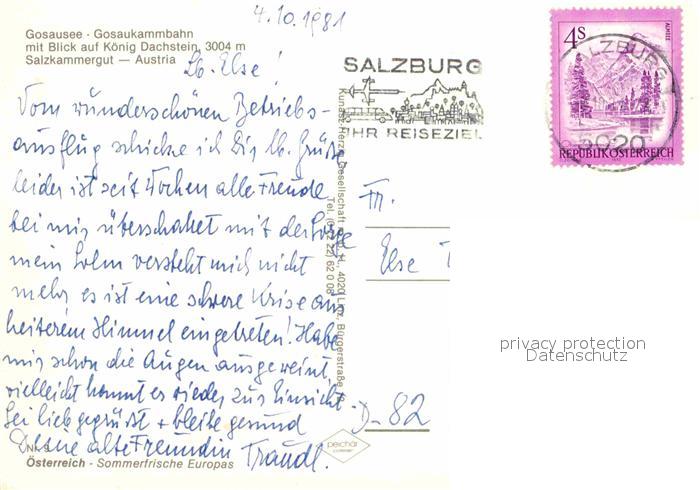 4.10.1981
Gosausee · Gosaukammbahn
mit Blick auf König Dachstein, 3004 m
Salzkammergut — Austria
Lb. Else!
Vom wunderschönen Betriebs-
ausflug schicke ich Dir lb. Grüße
leider ist seit Wochen alle Freude
bei mir überschattet mit der Sorge
mein Sohn versteht mich nicht
mehr es ist eine schwere Krise aus
heiterem Himmel eingetreten! Habe
mir schon die Augen ausgeweint,
vielleicht kommt er wieder zur Einsicht.
Sei lieb gegrüßt + bleibe gesund
Deine alte Freundin Traudl.
Österreich - Sommerfrische Europas
peichär
SALZBURG
IHR REISEZIEL
SALZBURG
5020
4S
ALMSEE
REPUBLIK ÖSTERREICH
Fr.
Else
D-82
4020 Linz, Bürgerstraße
privacy protection
Datenschutz